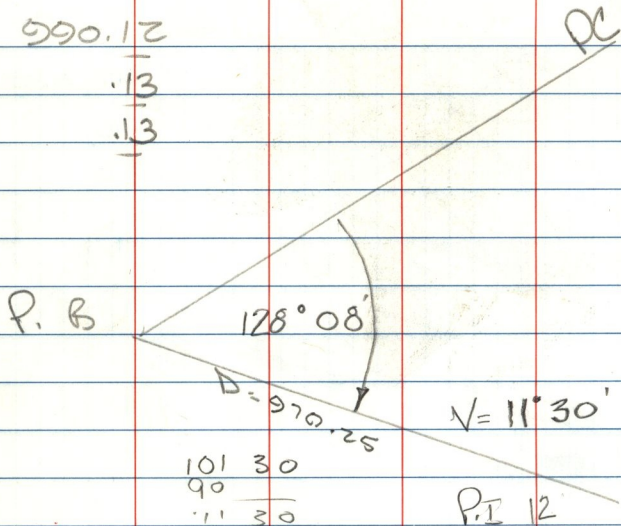 990.12
.13
.13
PC
P. B
128° 08'
D = 970.25
V = 11° 30'
101 30
90
11 30
P.I 12